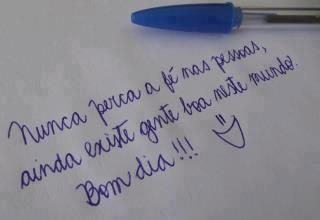 Nunca perca a fé nas pessoas,
ainda existe gente boa neste mundo!
Bom dia!!!